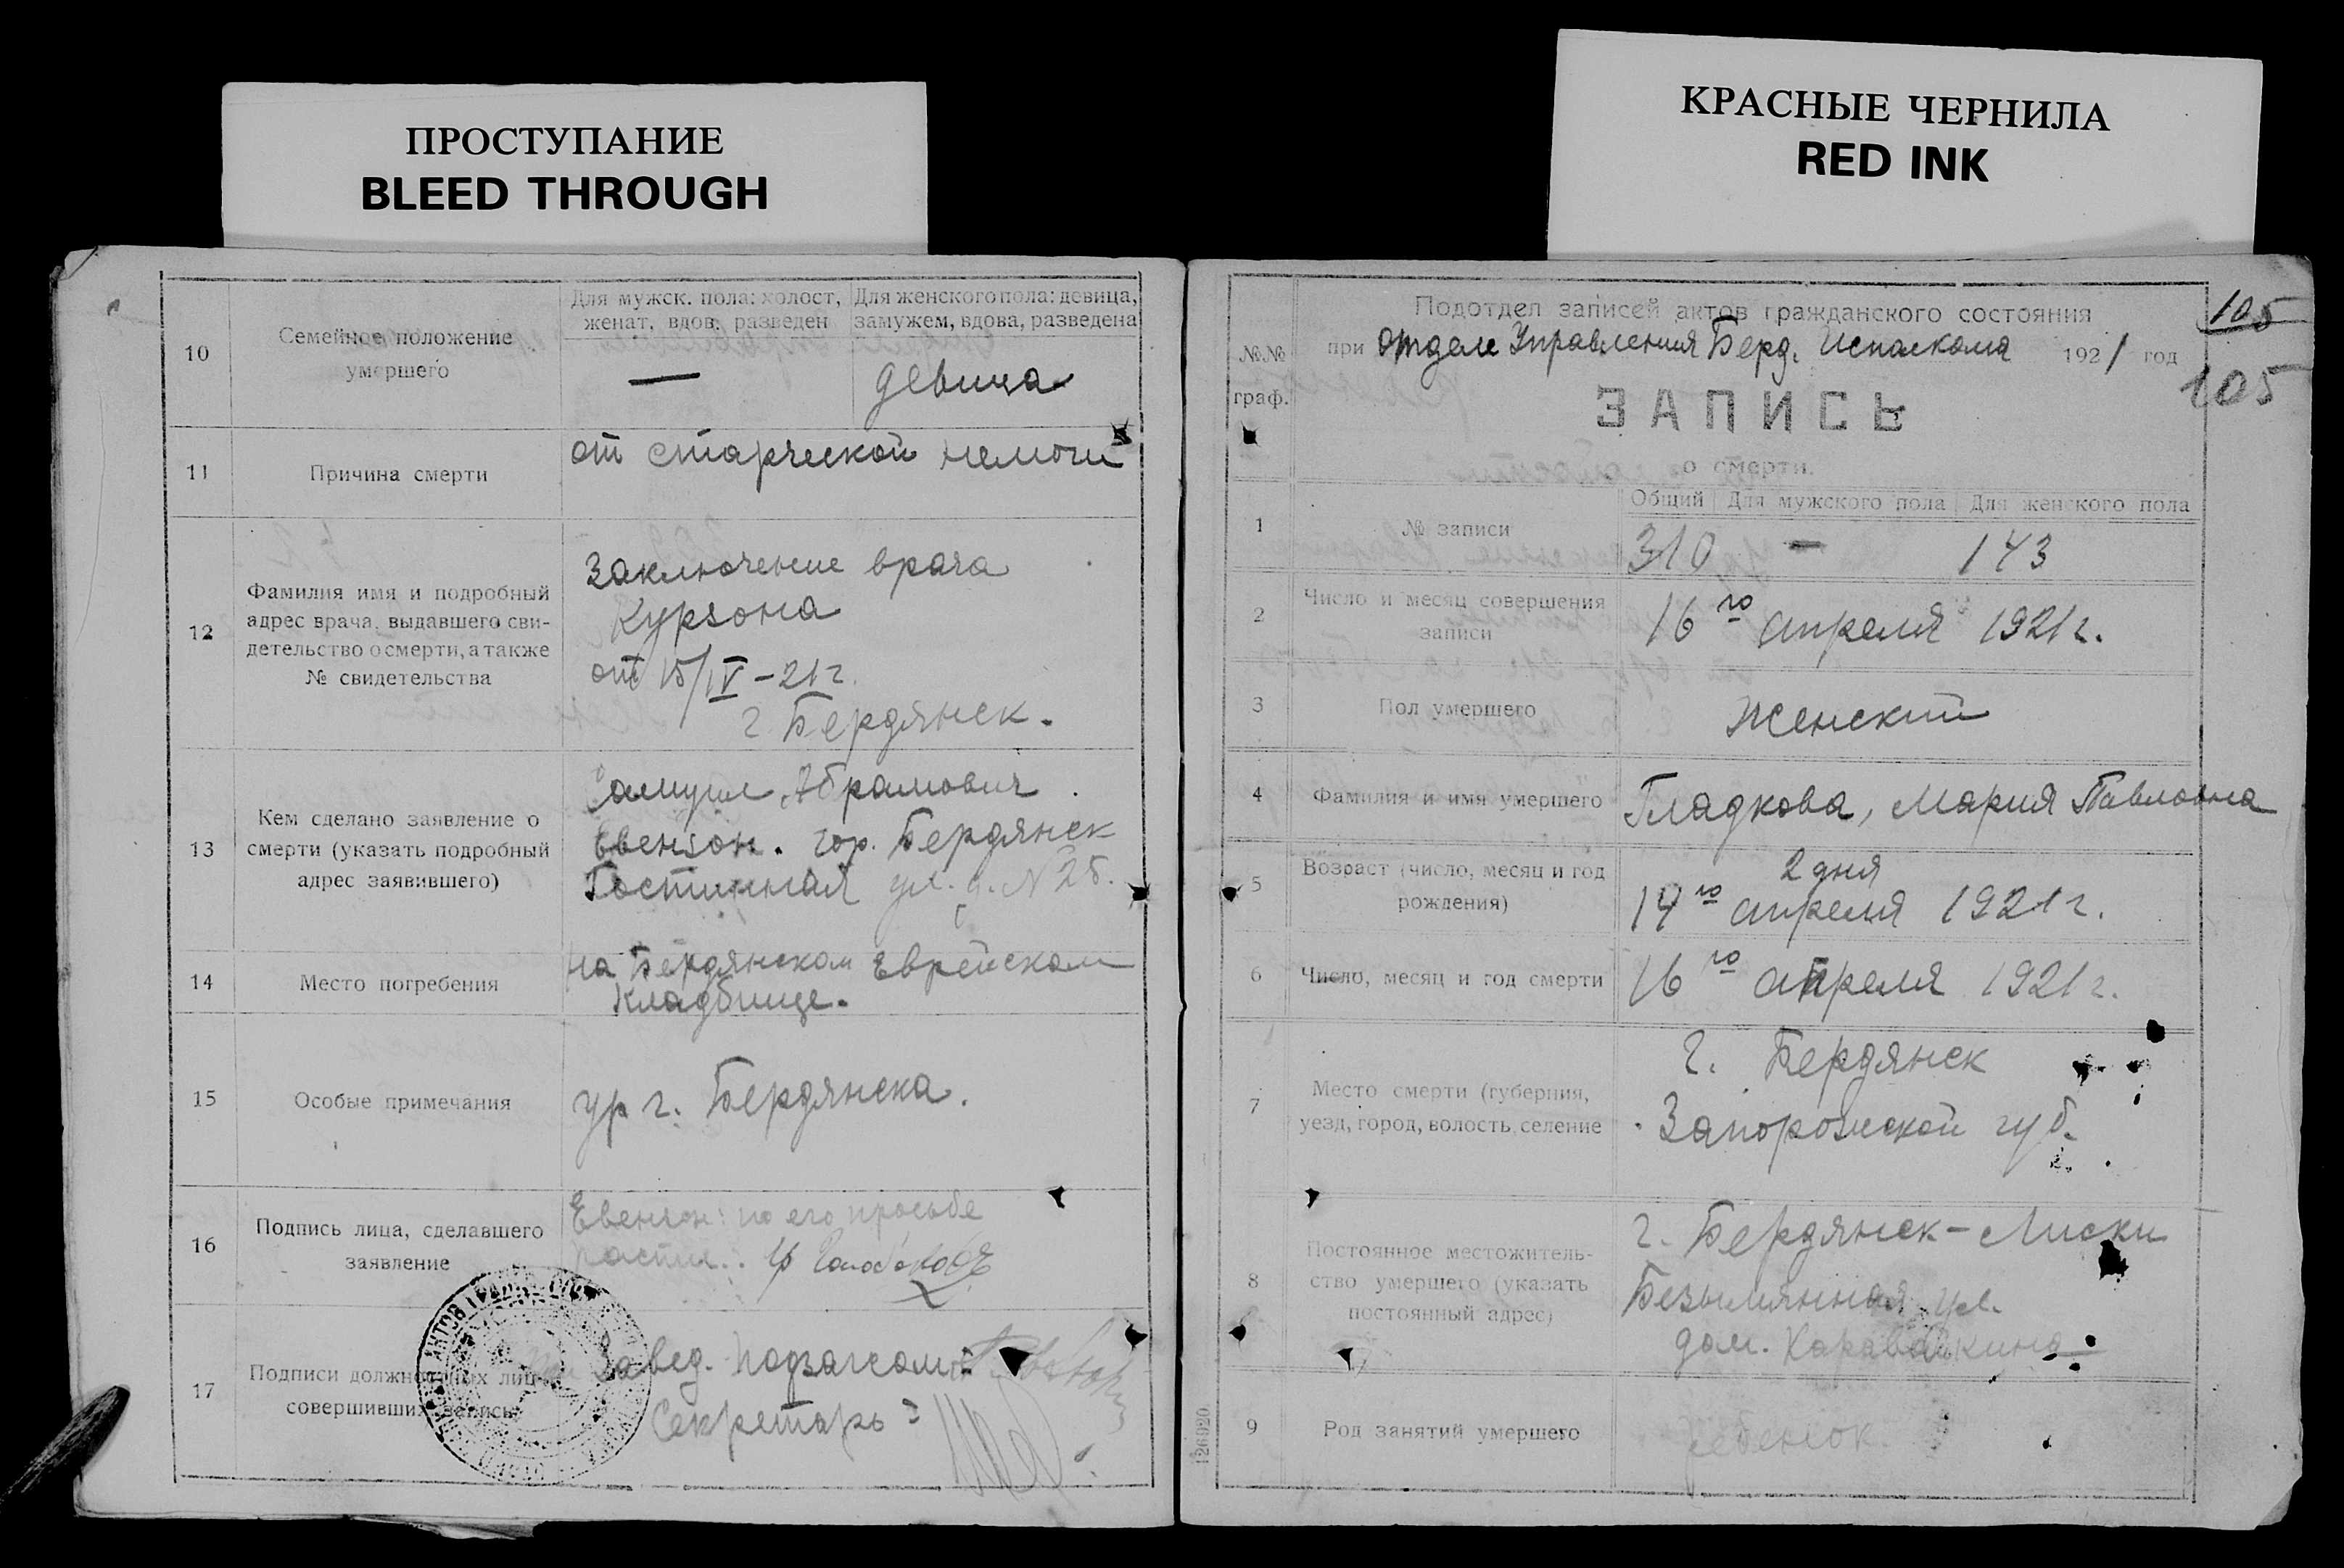 ПРОСТУПАНИЕ
BLEED THROUGH
КРАСНЫЕ ЧЕРНИЛА
RED INK
10
Семейное положение
умершего
Для мужск. пола: холост,
женат, вдов. разведен
—
Для женского пола: девица,
замужем, вдова, разведена
девица
11
Причина смерти
от старческой немочи
12
Фамилия имя и подробный
адрес врача, выдавшего сви-
детельство о смерти, а также
№ свидетельства
Заключение врача
Курзона
от 15/IV – 21 г.
г Бердянск.
13
Кем сделано заявление о
смерти (указать подробный
адрес заявившего)
Самуил Абрамович
Евензон. гор. Бердянск
Гостинная ул. д. № 25.
14
Место погребения
на Бердянском Еврейском
Кладбище.
15
Особые примечания
ур г. Бердянска.
16
Подпись лица, сделавшего
заявление
Евензон: по его просьбе
17
Подписи должностных лиц
совершивших запись
Завед. Подзагсом
Секретарь
105
105
№№
граф.
Подотдел записей актов гражданского состояния
при Отделе Управления Берд. Исполкома 1921 год
ЗАПИСЬ
о смерти.
1
№ записи
Общий Для мужского пола Для женского пола
310 – 143
2
Число и месяц совершения
записи
16го апреля 1921 г.
3
Пол умершего
Женский
4
Фамилия и имя умершего
Гладкова, Мария Павловна
5
Возраст (число, месяц и год
рождения)
2 дня
14го апреля 1921 г.
6
Число, месяц и год смерти
16го апреля 1921 г.
7
Место смерти (губерния,
уезд, город, волость, селение
г. Бердянск
Запорожской губ.
8
Постоянное местожитель-
ство умершего (указать
постоянный адрес)
г. Бердянск – Лиски
Безымянная ул.
дом. Каравайкина
9
Род занятий умершего
ребенок
126920